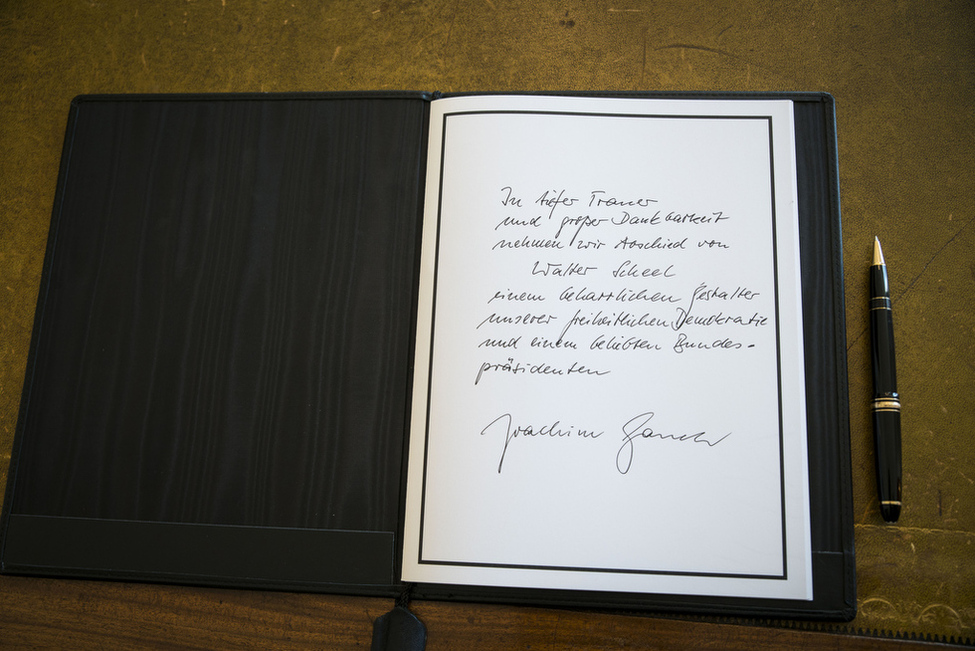 In tiefer Trauer
und großer Dankbarkeit
nehmen wir Abschied von
Walter Scheel
einem beharrlichen Gestalter
unserer freiheitlichen Demokratie
und einem beliebten Bundes-
präsidenten
Joachim Gauck